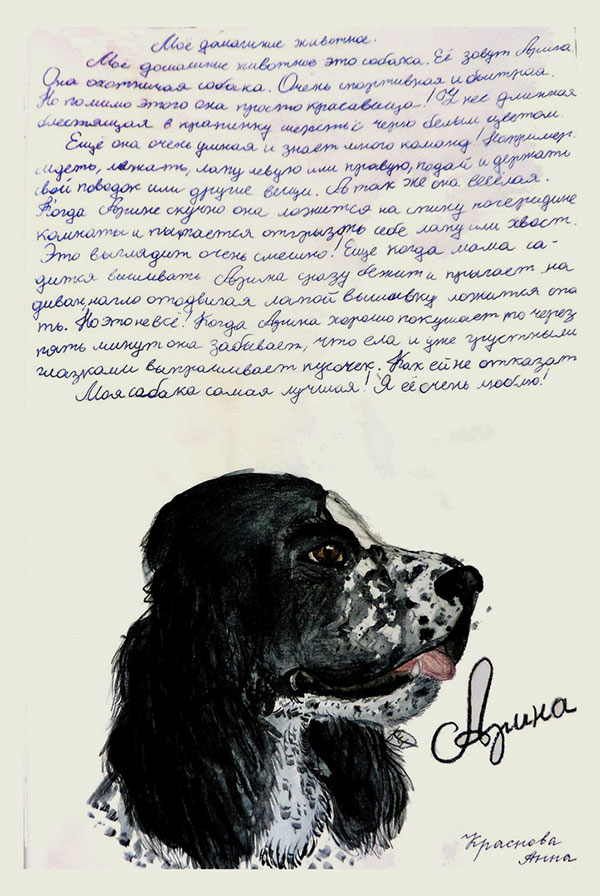 Моё домашние животное.
Моё домашние животное это собака. Её зовут Арина
Она охотничая собака. Очень спортивная и быстрая.
Но помимо этого она просто красавица! У неё длинная
блестящая в крапинку шерсть с черно белым цветом.
Ещё она очень умная и знает много команд! Например:
сидеть, лежать, лапу левую или правую, подай и держать
свой поводок или другие вещи. А так же она весёлая.
Когда Арине скучно она ложится на спину посередине
комнаты и пытается отгрызть себе лапу или хвост.
Это выглядит очень смешно! Еще когда мама са-
дится вышивать Арина сразу бежит и прыгает на
диван, нагло отодвигая лапой вышивку ложится спа
ть. Но это не всё! Когда Арина хорошо покушает то через
пять минут она забывает, что ела и уже грустными
глазками выпрашивает кусочек. Как ей не отказат
Моя сабака самая лучшая! Я её очень люблю!
Арина
Краснова
Анна